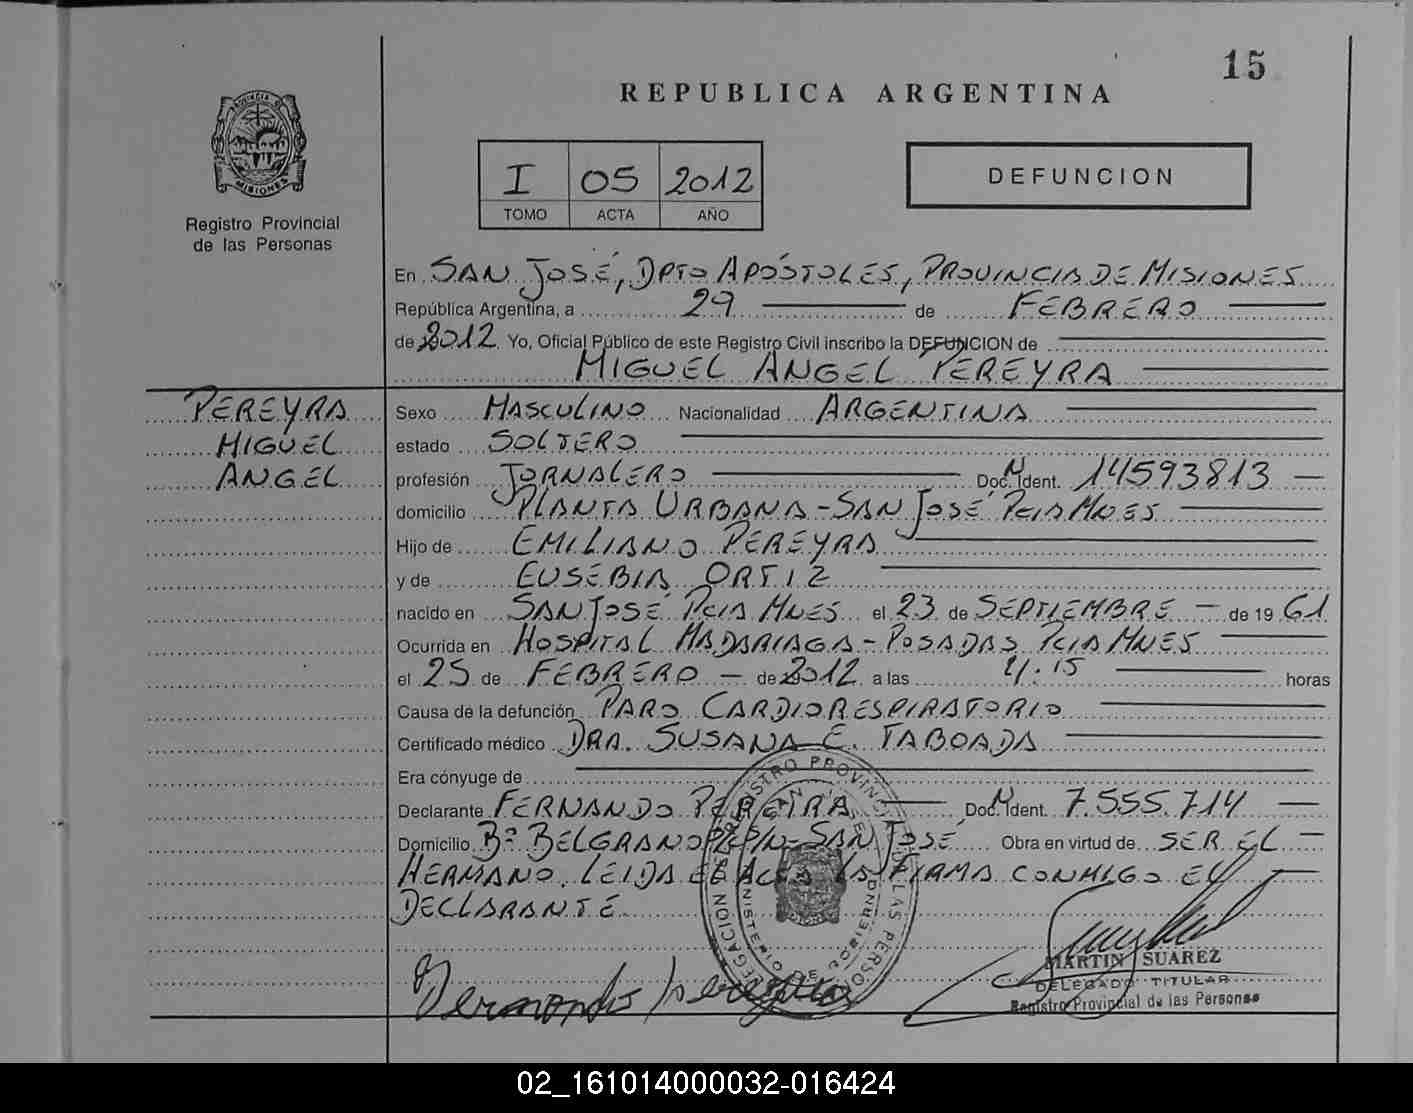 15
REPUBLICA ARGENTINA
PROVINCIA DE
MISIONES
Registro Provincial
de las Personas
I 05 2012
TOMO ACTA AÑO
DEFUNCION
En SAN JOSÉ, DPTO APÓSTOLES, PROVINCIA DE MISIONES
República Argentina, a 29 de FEBRERO
de 2012. Yo, Oficial Público de este Registro Civil inscribo la DEFUNCION de
MIGUEL ANGEL PEREYRA
PEREYRA
MIGUEL
ANGEL
Sexo MASCULINO Nacionalidad ARGENTINA
estado SOLTERO
profesión JORNALERO Doc. Ident. 14593813
domicilio PLANTA URBANA - SAN JOSÉ PCIA MNES
Hijo de EMILIANO PEREYRA
y de EUSEBIA ORTIZ
nacido en SAN JOSÉ PCIA MNES el 23 de SEPTIEMBRE de 19 61
Ocurrida en HOSPITAL MADARIAGA - POSADAS PCIA MNES
el 25 de FEBRERO de 2012 a las 4:15 horas
Causa de la defunción PARO CARDIORESPIRATORIO
Certificado médico DRA. SUSANA E. TABOADA
Era cónyuge de
Declarante FERNANDO PEREYRA Doc. Ident. 7.555.714
Domicilio Bº BELGRANO S/N - SAN JOSÉ Obra en virtud de SER EL
HERMANO. LEIDA EL ACTA LA FIRMA CONMIGO EL
DECLARANTE
Fernando Pereyra
MARTIN SUAREZ
DELEGADO TITULAR
Registro Provincial de las Personas
02_161014000032-016424